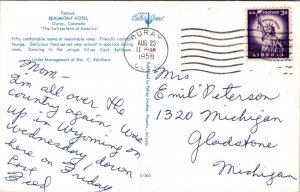 Famous
BEAUMONT HOTEL
Ouray, Colorado
"The Switzerland of America"
Fifty comfortable rooms at reasonable rates. Friendly cocktail
lounge. Delicious food served around in spacious dining
room. Dancing in the unique Silver Rock Ballroom.
Under Management of Wm. C. Rainbard
Mom—
I'm all over the
country again! Was
up in Wyoming on
Wednesday, down
here on Friday
Love
Fred
OURAY
AUG 23
1958
COLO.
U.S. POSTAGE
3¢
LIBERTY
Mrs
Emil Peterson
1320 Michigan
Gladstone
Michigan